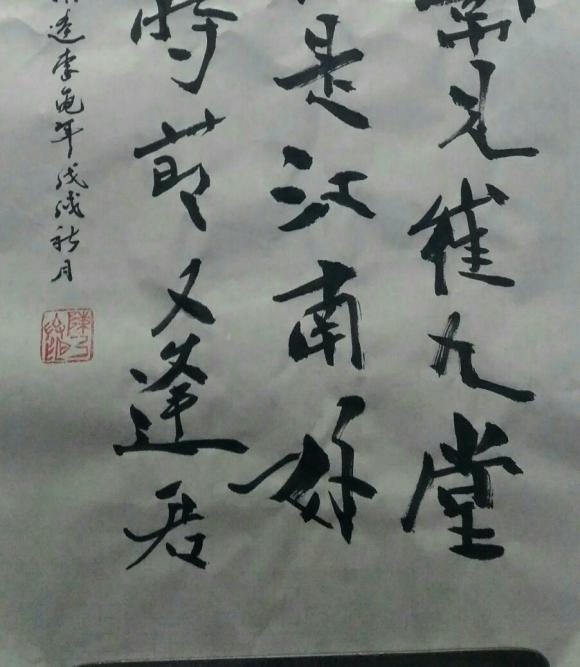 常见崔九堂
是江南好
時節又逢君
逢李龟年戊戌秋月